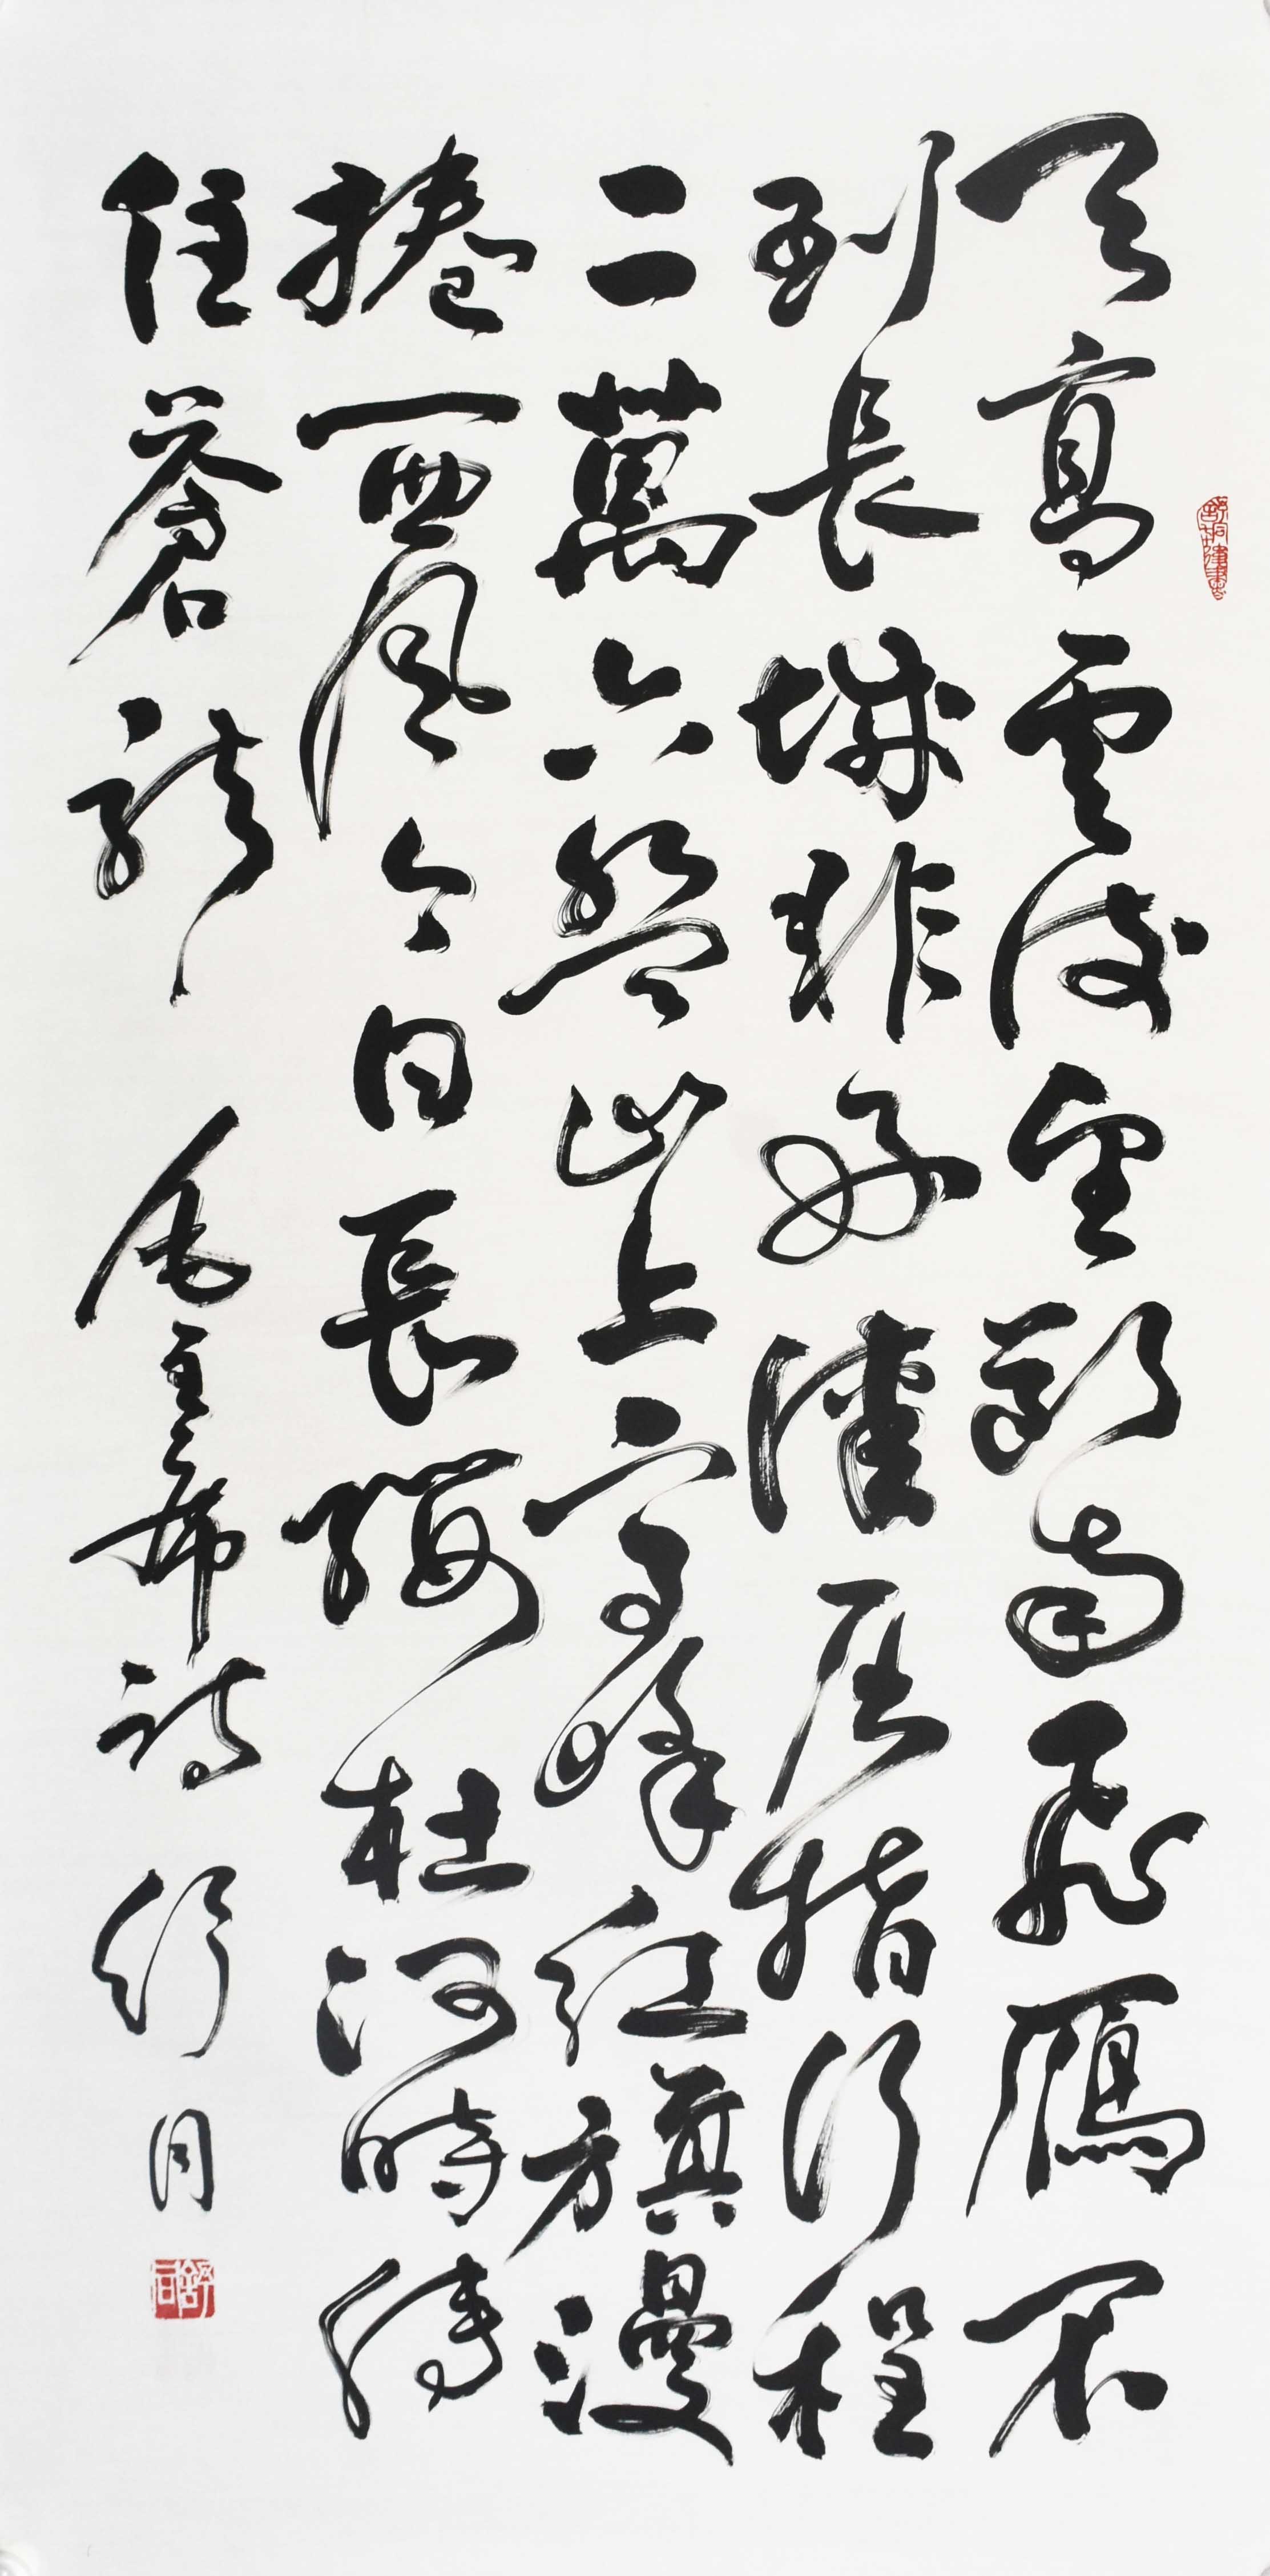 天高雲淡望斷南飛鴈不
到長城非好漢屈指行程
二萬六盤山上高峰紅旗漫
捲西風今日長纓在何時縛
住蒼龍 毛主席詩 舒同
舒同